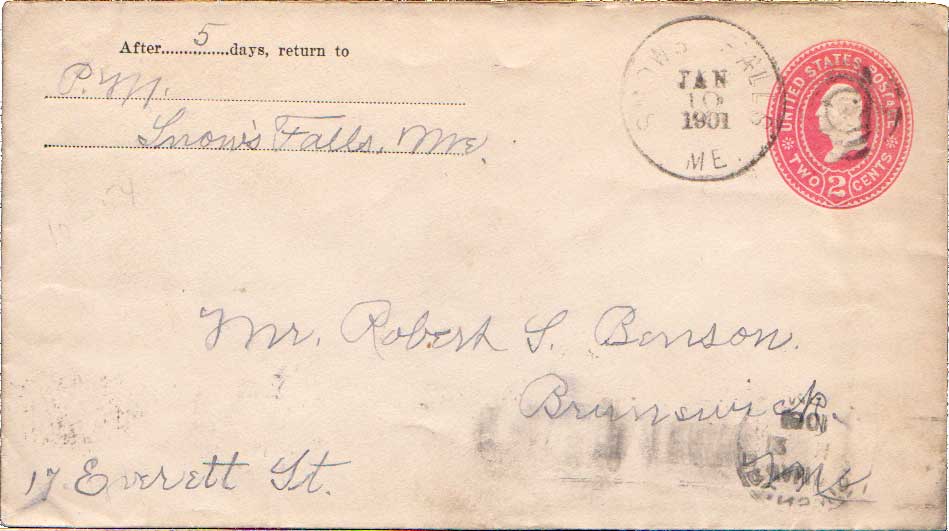 After 5 days, return to
P.M.
Snow's Falls, Me.
SNOWS FALLS
JAN
10
1901
ME.
UNITED STATES POSTAGE
TWO 2 CENTS
Mr. Robert S. Benson.
Brunswick.
Me.
17 Everett St.